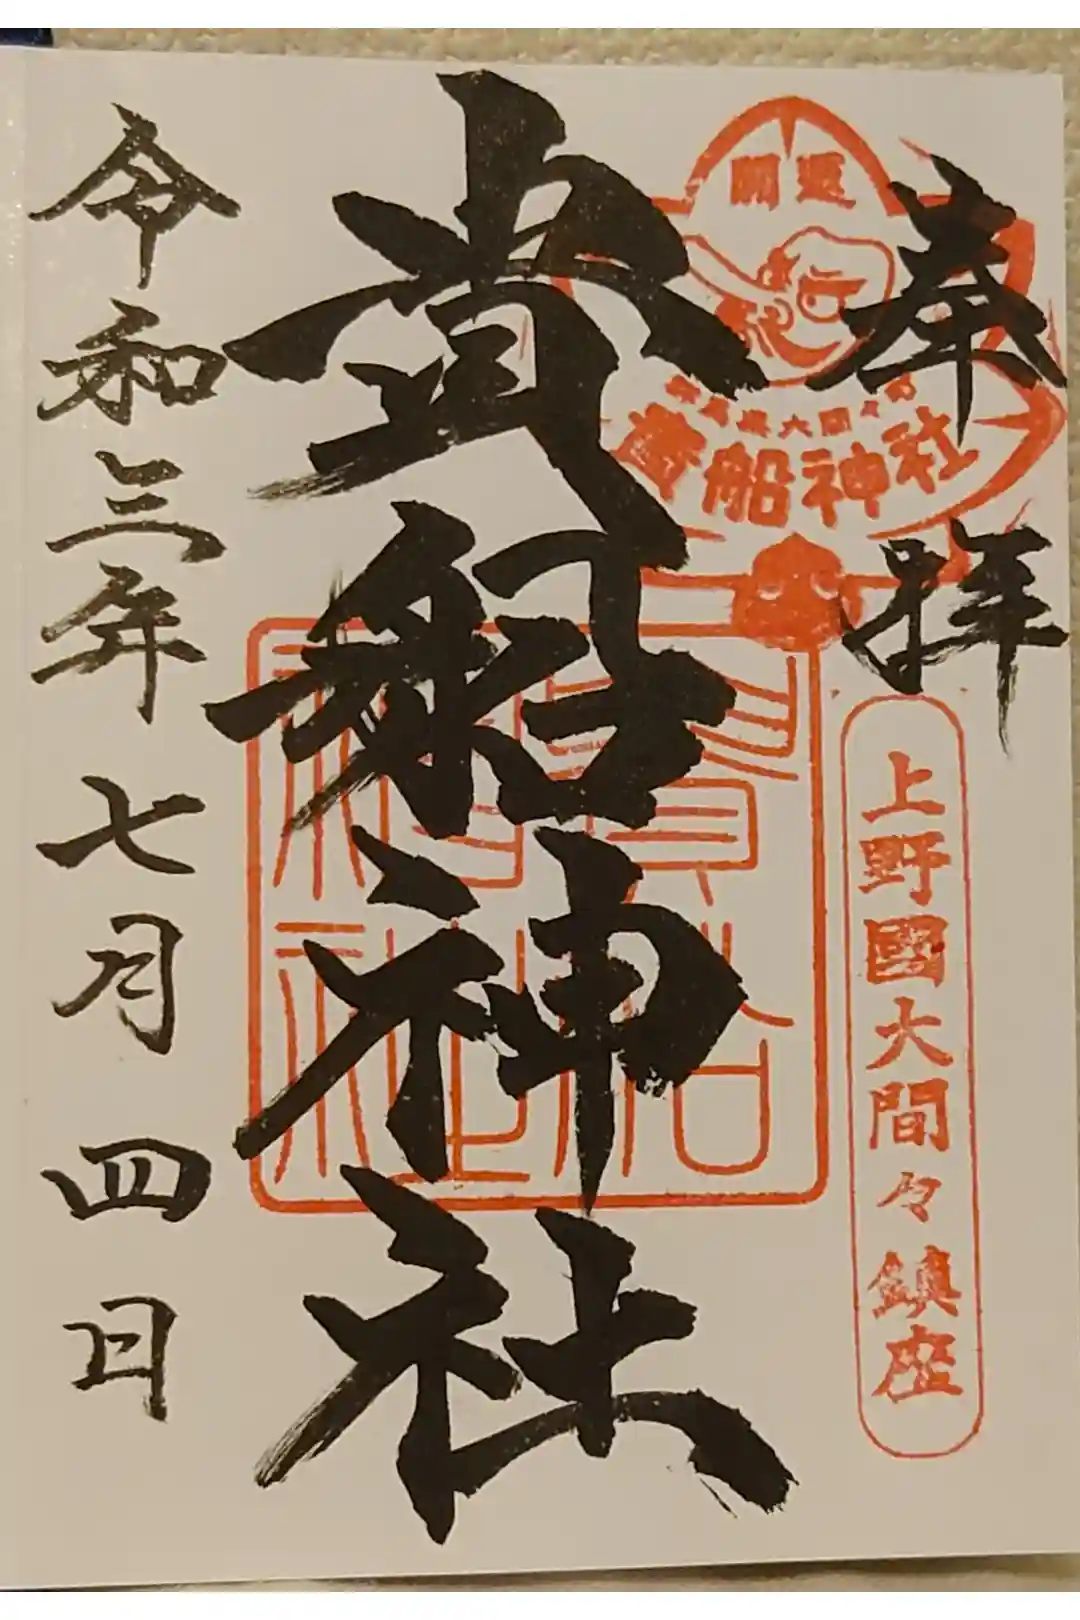 奉拝
開運
群馬県大間々町
貴船神社
上野國大間々鎮座
貴船神社
貴船神社
令和三年七月四日